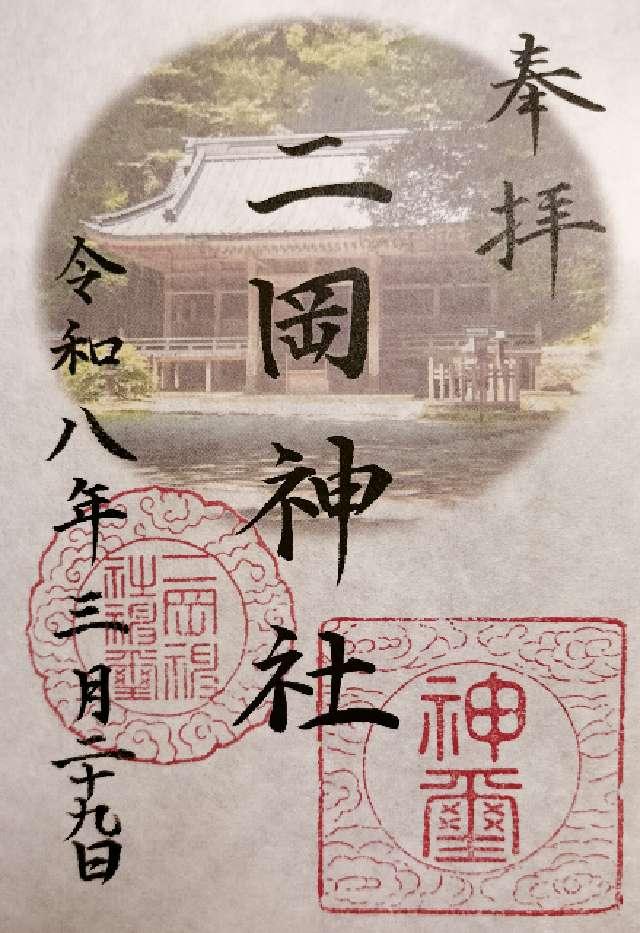 奉拝
二岡神社
令和八年三月二十九日
二岡神社神璽
神璽